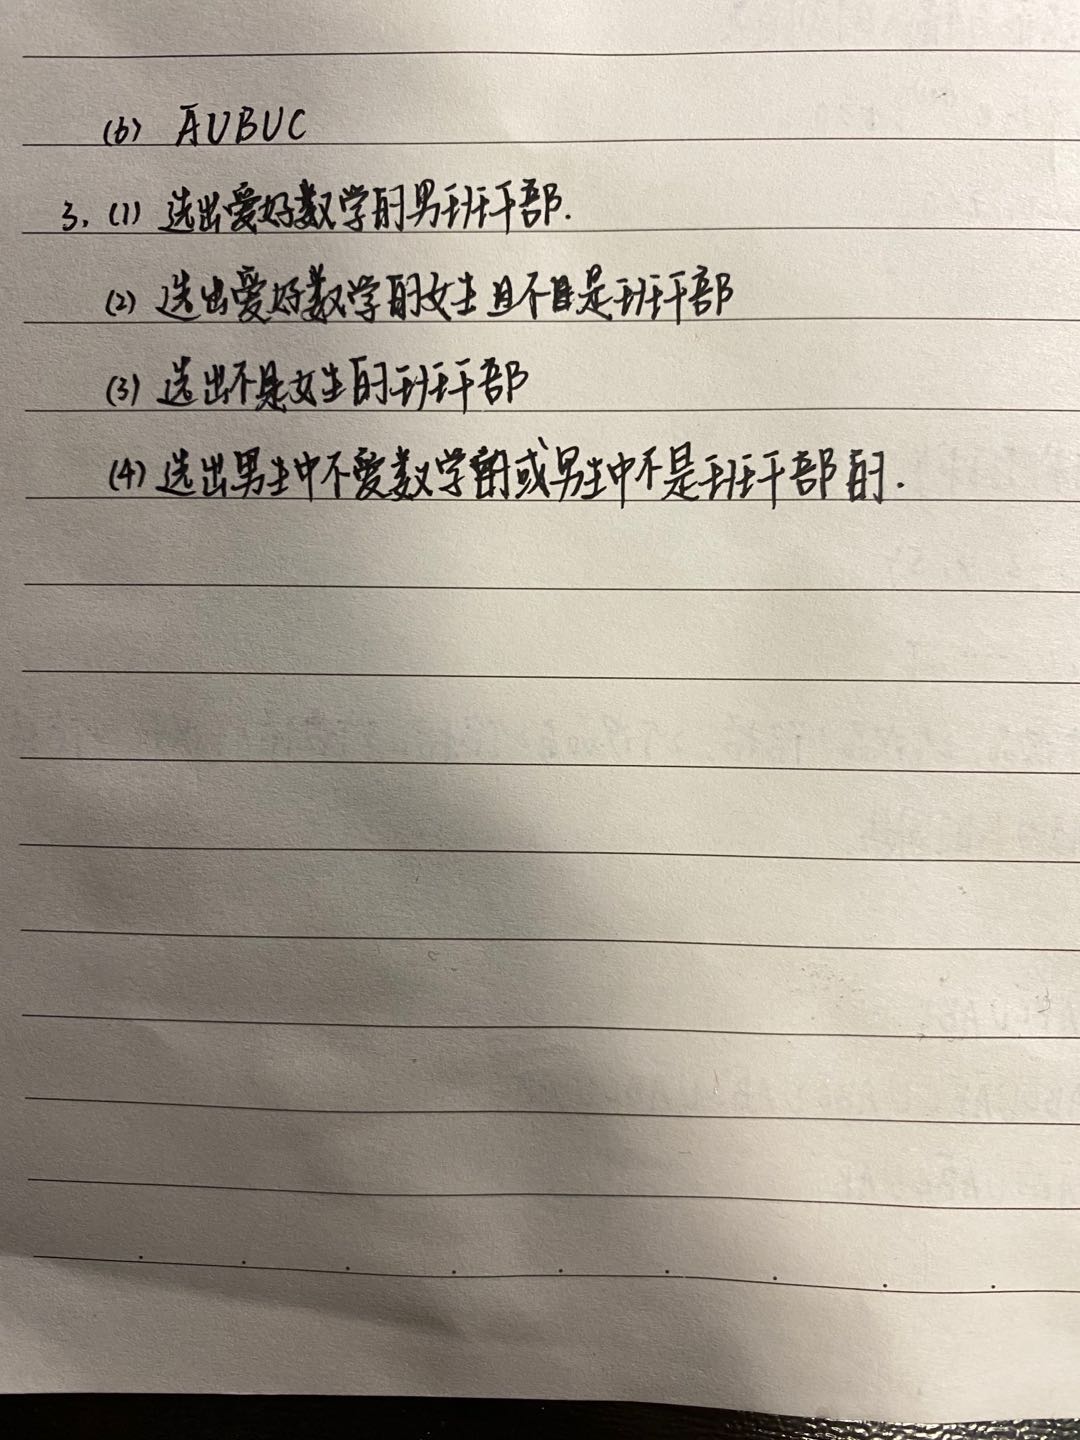 (6) A̅UBUC
3. (1) 选出爱好数学的男班干部.
(2) 选出爱好数学的女生且不是班干部
(3) 选出不是女生的班干部
(4) 选出男生中不爱数学的或男生中不是班干部的.